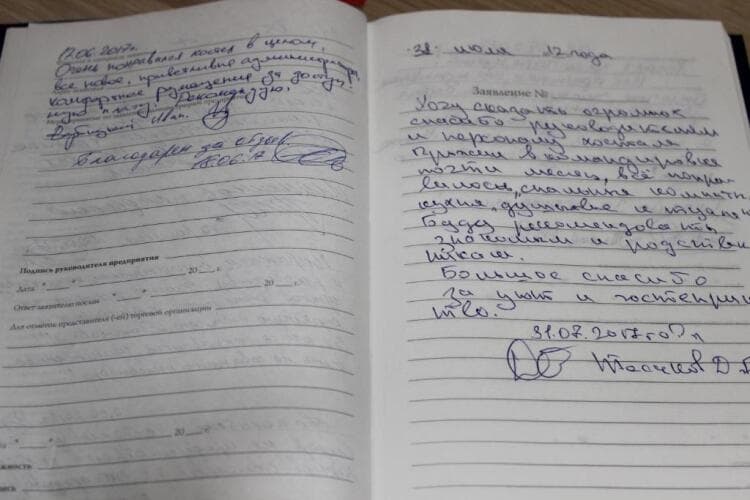 17.06.2017г.
Очень понравился хостел в целом,
все новое, приветливые администраторы,
комфортное размещение за доступ-
ную плату. Рекомендую.
Иван.
Благодарен за отзыв
18.06.17
Подпись руководителя предприятия
Дата " " 20 г.
Ответ заявителю послан " " 20 г.
Для отметок представителя (-ей) торговой организации
" " 20 г.
31 июля 17 года
Заявление №
Хочу сказать огромное
спасибо руководителям
и персоналу хостела
Прожил в командировке
почти месяц, всё понра-
вилось, спальные комнаты
кухня, душевые и туалет
Буду рекомендовать
знакомым и родствен
никам.
Большое спасибо
за уют и гостеприи
тво.
31.07.2017год